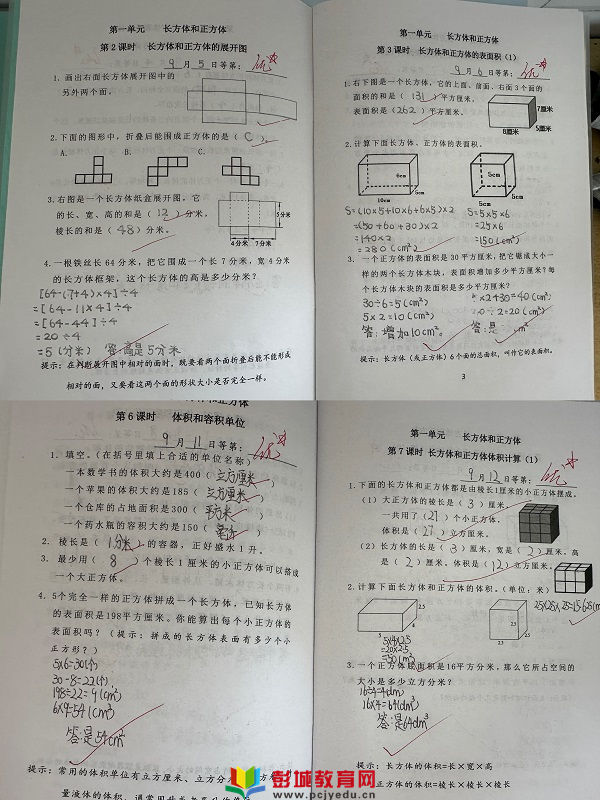 第一单元 长方体和正方体
第2课时 长方体和正方体的展开图
9月5日等第：优
1.画出右面长方体展开图中的
另外两个面。
2.下面的图形中，折叠后能围成正方体的是（C）。
A. B. C.
3.右图是一个长方体纸盒展开图。它
的长、宽、高的和是（12）分米，
棱长的和是（48）分米。
5分米
4分米 7分米
4.一根铁丝长64分米，把它围成一个长7分米，宽4分米
的长方体框架，这个长方体的高是多少分米？
[64-(7+4)×4]÷4
=[64-11×4]÷4
=[64-44]÷4
=20÷4
=5(分米) 答:高是5分米
提示：在判断展开图中相对的面时，既要看两个面折叠后能不能形成
相对的面，又要看这两个面的形状大小是否完全一样。
第一单元 长方体和正方体
第3课时 长方体和正方体的表面积（1）
9月6日等第：优
1.右下图是一个长方体，它的上面、前面、右面3个面的
面积的和是（131）平方厘米，
表面积是（262）平方厘米。
7厘米
8厘米 5厘米
2.计算下面长方体、正方体的表面积。
6cm
5cm
10cm
5cm
5cm
5cm
S=(10×5+10×6+6×5)×2
=(50+60+30)×2
=140×2
=280(cm²)
S=5×5×6
=25×6
=150(cm²)
3.一个正方体的表面积是30平方厘米，把它锯成大小一
样的两个长方体木块，表面积增加多少平方厘米？每
个长方体木块的表面积是多少平方厘米？
30÷6=5(cm²)
5×2=10(cm²)
答:增加10cm²。
5×2+30=40(cm²)
÷2=20(cm²)
答:是 cm²
提示：长方体（或正方体）6个面的总面积，叫作它的表面积。
3
长方体和正方体
第6课时 体积和容积单位
9月11日等第：优
1.填空。（在括号里填上合适的单位名称）
一本数学书的体积大约是400（立方厘米）
一个苹果的体积大约是185（立方厘米）
一个仓库的占地面积是300（平方米）
一个药水瓶的容积大约是150（毫升）
2.棱长是（1分米）的容器，正好盛水1升。
3.最少用（8）个棱长1厘米的小正方体可以搭成
一个大正方体。
4.5个完全一样的正方体拼成一个长方体，已知长方体
的表面积是198平方厘米。你能算出每个小正方体的
表面积吗？（提示：拼成的长方体表面有多少个小
正方形？）
5×6=30(个)
30-8=22(个)
198÷22=9(cm²)
6×9=54(cm²)
答:是54cm²
提示：常用的体积单位有立方厘米、立方分
量液体的体积，通常用升或毫升
第一单元 长方体和正方体
第7课时 长方体和正方体体积计算（1）
9月12日等第：优
1.下面的长方体和正方体都是由棱长1厘米的小正方体摆成。
（1）大正方体的棱长是（3）厘米，
一共用了（27）个小正方体，
体积是（27）立方厘米。
（2）长方体的长是（3）厘米，宽是（2）厘米，高
是（2）厘米。体积是（12）立方厘米。
2.计算下面长方体和正方体的体积。（单位：米）
2.5
2.5
2.5
5×4×2.5
=20×2.5
=50(m³)
2.5×2.5×2.5=15.625(m³)
3.一个正方体底面积是16平方分米，那么它所占空间的
大小是多少立方分米？
16÷4=4dm
16×4=64(dm³)
答:是64dm³
提示：长方体的体积=长×宽×高
正方体的体积=棱长×棱长×棱长
彭城教育网
www.pcjyedu.cn